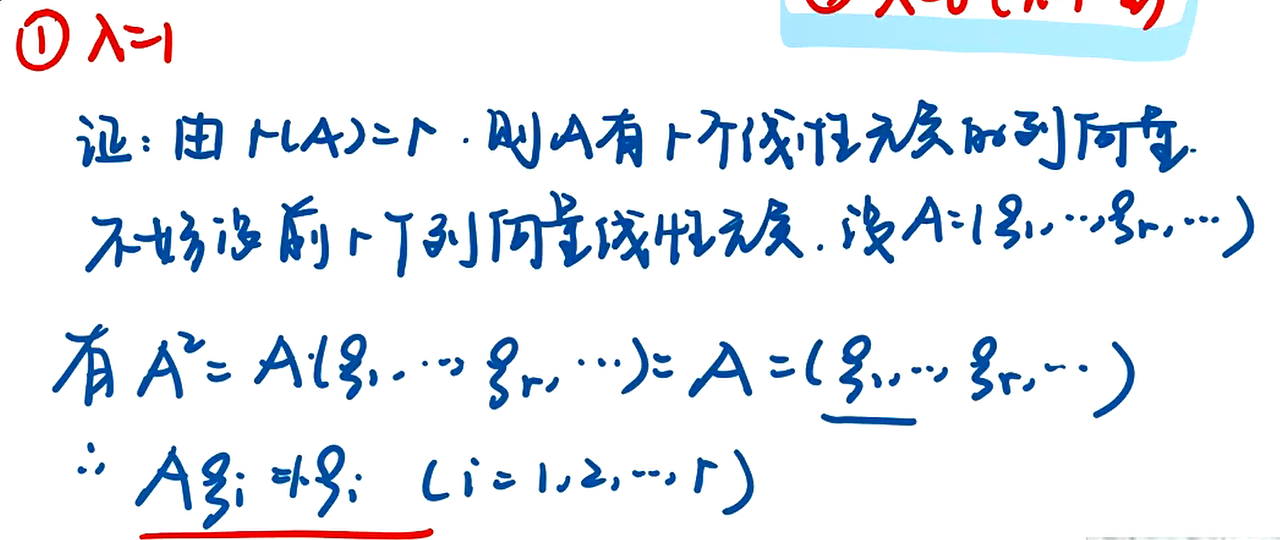 ① λ=1
证:由 r(A)=r.则A有r个线性无关的列向量.
不妨设前r个列向量线性无关.设A=(ξ₁,…,ξᵣ,…)
有 A²=A(ξ₁,…,ξᵣ,…)=A=(ξ₁,…,ξᵣ,…)
∴ Aξᵢ=1·ξᵢ (i=1,2,…,r)